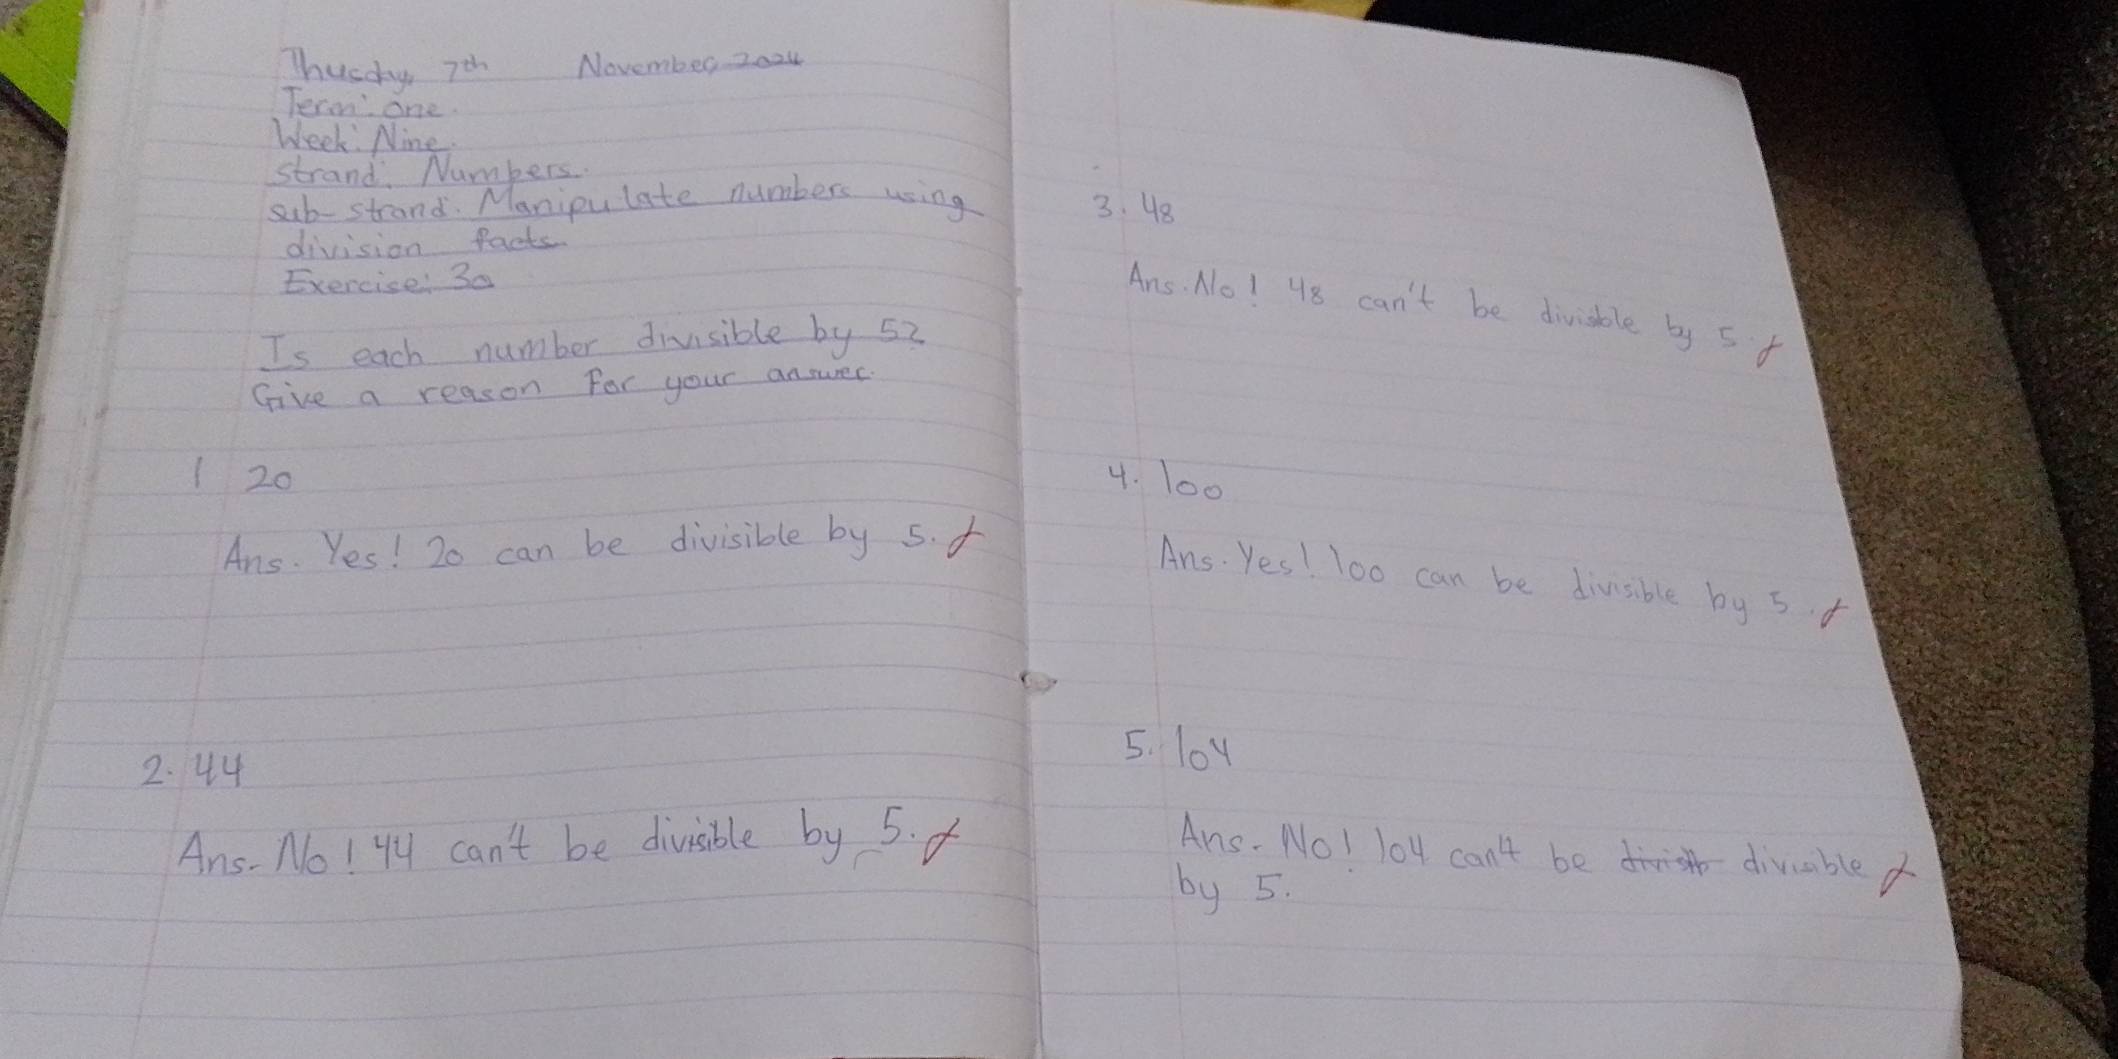 Thusday 7th November 2024
Term: One.
Week: Nine.
Strand: Numbers.
sub-strand: Manipulate numbers using
division facts
Exercise: 30
Is each number divisible by 5?
Give a reason for your answer.
1 20
Ans. Yes! 20 can be divisible by 5.
2. 44
Ans. No! 44 can't be divisible by 5.
3. 48
Ans. No! 48 can't be divisible by 5.
4. 100
Ans. Yes! 100 can be divisible by 5.
5. 104
Ans. No! 104 can't be divisible
by 5.